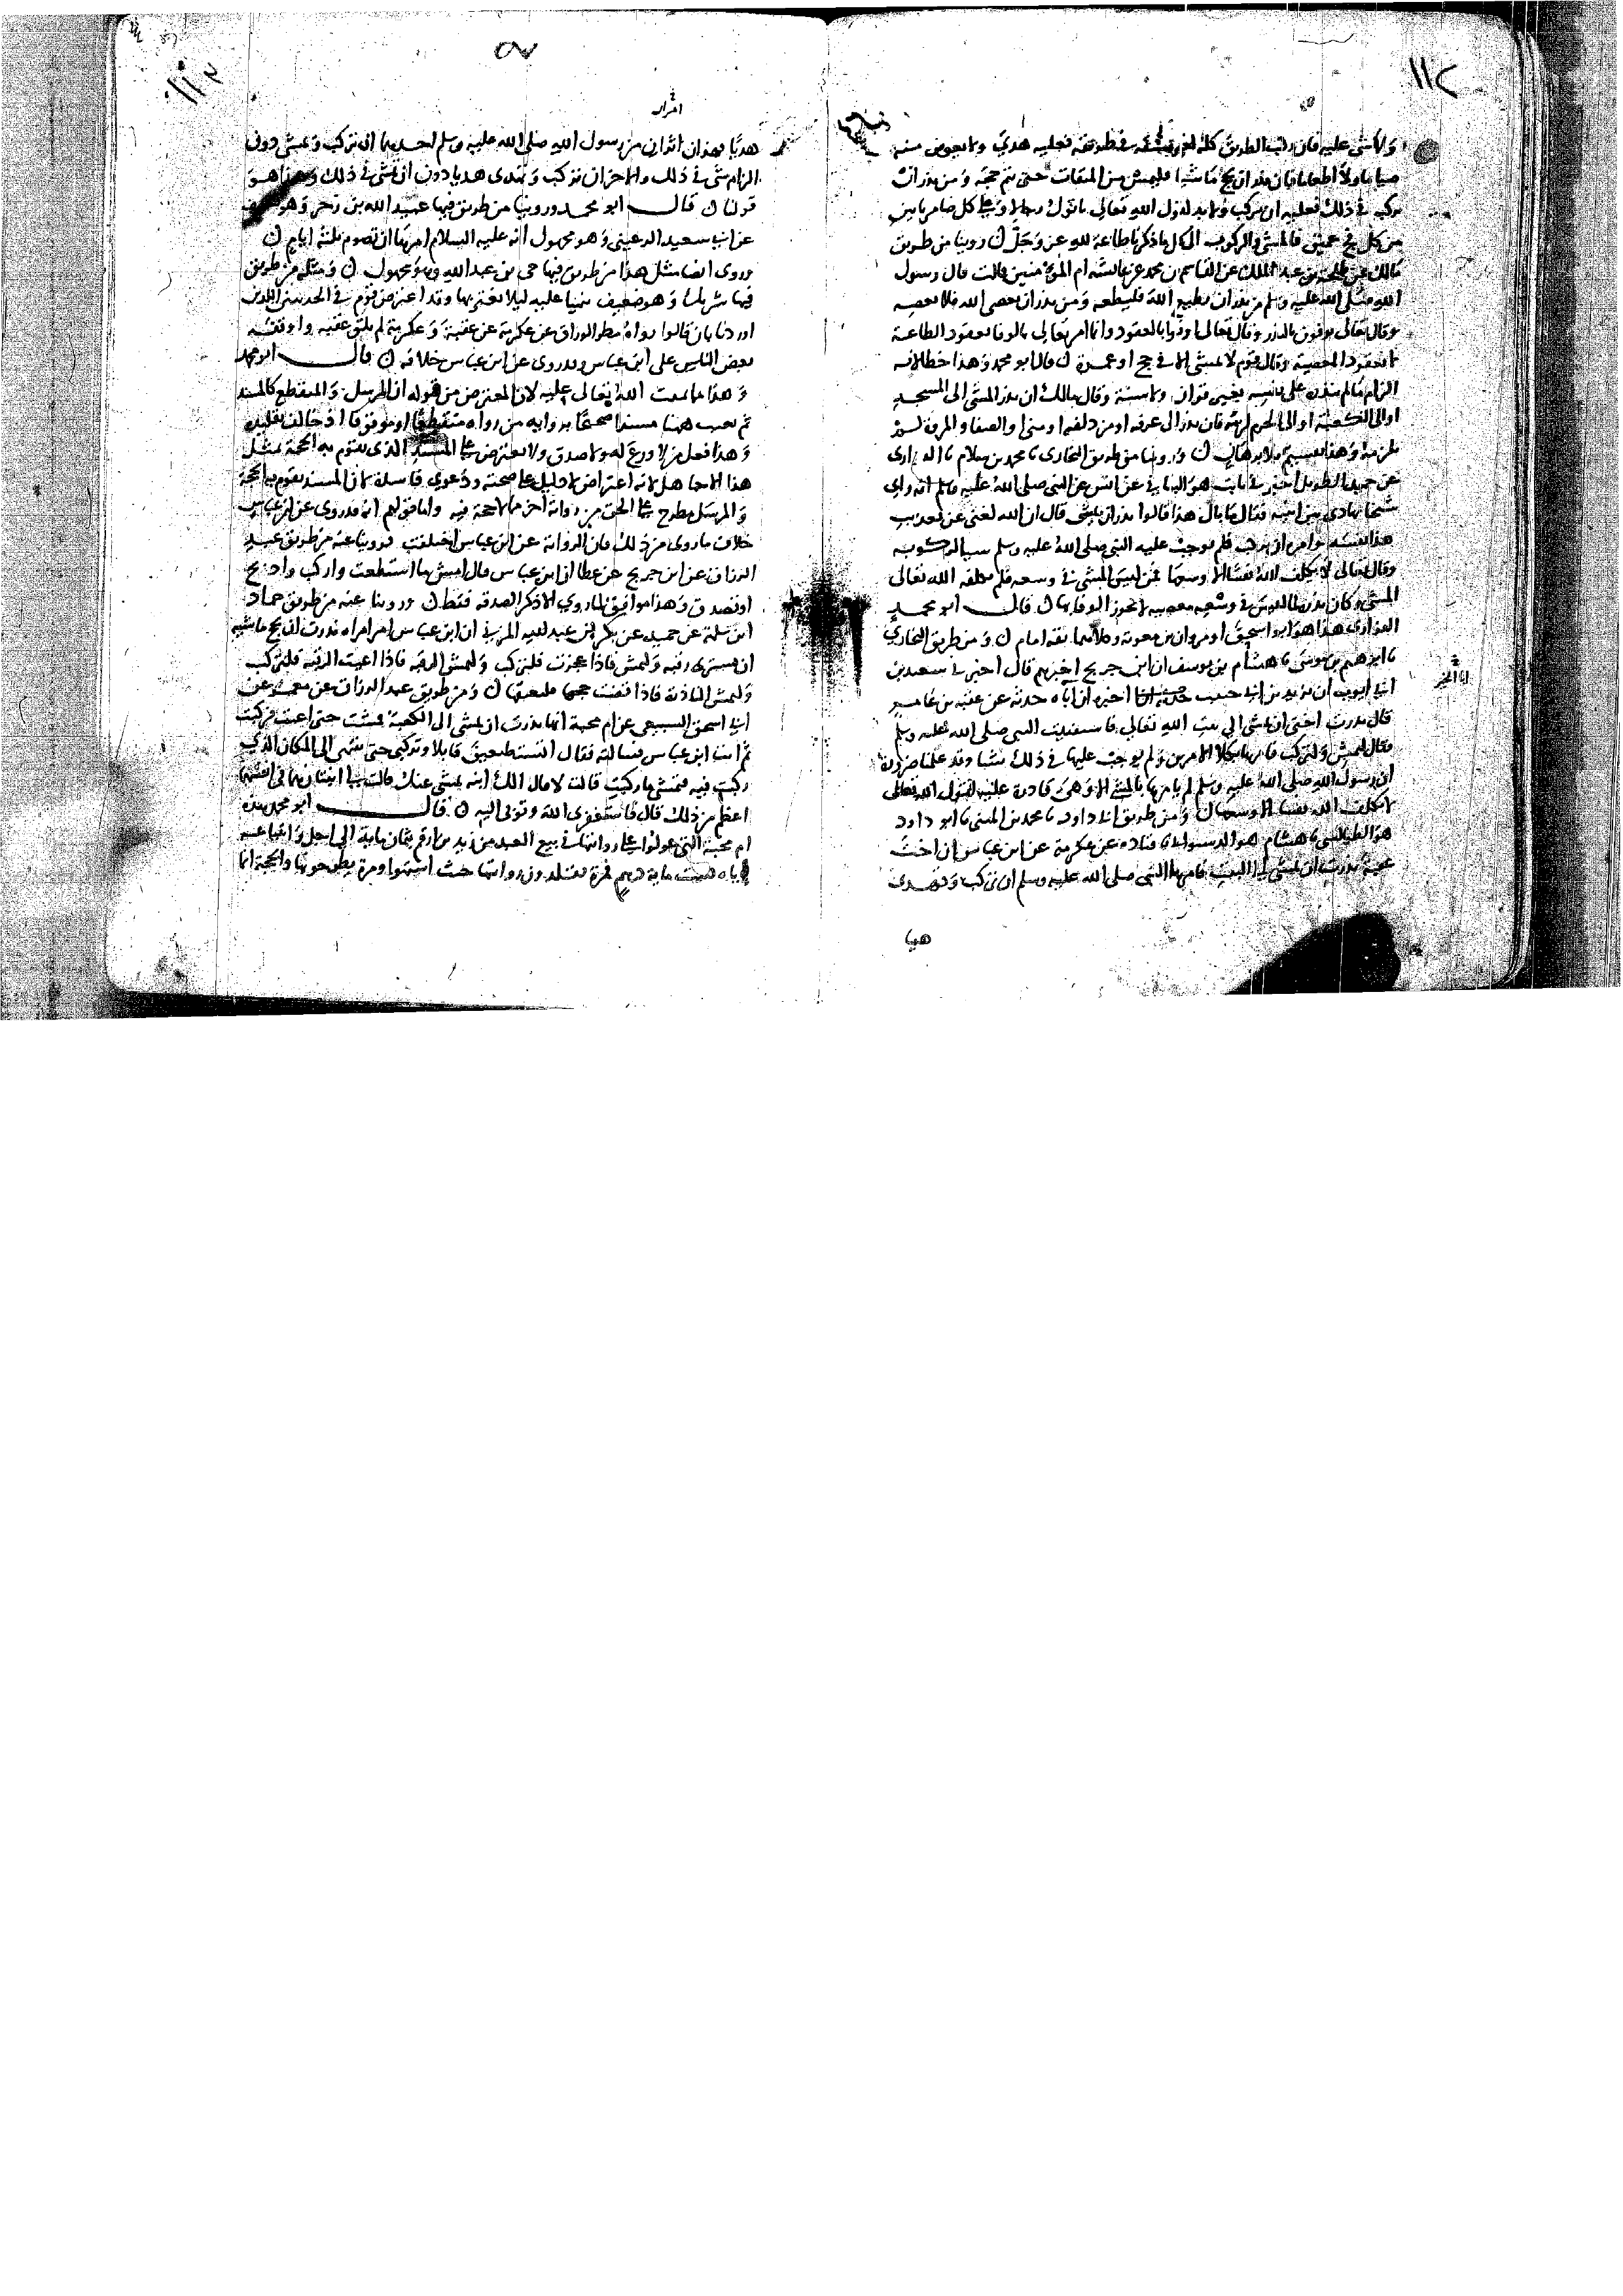 ١١٢
ولا شي عليه فان ركب الطريق كله لغير مشقة في طريقه فعليه هدي ولا يعوض منه
صياما ولا اطعاما فان نذر ان يحج ماشيا فليمش من الميقات حتى يتم حجه ومن نذر ان
يركب في ذلك فعليه ان يركب ولا بد لقول الله تعالى ياتوك رجالا وعلى كل ضامر ياتين
من كل فج عميق فالمشي والركوب الى كل ما ذكرنا طاعة لله عز وجل ن روينا من طريق
مالك عن طلحة بن عبد الملك عن القاسم بن محمد عن عايشة ام المومنين قالت قال رسول
الله صلى الله عليه وسلم من نذر ان يطيع الله فليطعه ومن نذر ان يعصي الله فلا يعصه
وقال تعالى يوفون بالنذر وقال تعالى اوفوا بالعقود وانما امر تعالى بالوفا بعقود الطاعة
لا بعقود المعصية وقال قوم لا مشي الا في حج او عمرة ن قال ابو محمد وهذا خطا لانه
الزام ما لم ينذره على نفسه بغير قران ولا سنة وقال مالك ان نذر المشي الى المسجد
او الى الكعبة او الى الحرم لزمه فان نذر الى عرفة او مزدلفة او منى او الصفا والمروة لم
يلزمه وهذا تقسيم بلا برهان ن وروينا من طريق البخاري نا محمد بن سلام نا الفزاري
عن حميد الطويل اخبرني ثابت هو البناني عن انس عن النبي صلى الله عليه وسلم انه راى
شيخا يهادى بين ابنيه فقال ما بال هذا قالوا نذر ان يمشي قال ان الله لغني عن تعذيب
هذا نفسه وامره ان يركب فلم يوجب عليه النبي صلى الله عليه وسلم شيا لركوبه
وقال تعالى لا يكلف الله نفسا الا وسعها فمن ليس المشي في وسعه فلم يكلفه الله تعالى
المشي وكان نذره ما ليس في وسعه معصية لا يجوز الوفا بها ن قال ابو محمد
الفزاري هذا هو ابو اسحق او مروان بن معوية وكلاهما ثقة امام ن ومن طريق البخاري
نا ابرهيم بن موسى نا هشام بن يوسف ان ابن جريج اخبرهم قال اخبرني سعيد بن
ابي ايوب ان يزيد بن ابي حبيب اخبره ان ابا الخير حدثه عن عقبة بن عامر
ابا الخير
قال نذرت اختي ان تمشي الى بيت الله تعالى فاستفتيت النبي صلى الله عليه وسلم
فقال لتمش ولتركب فامرها بكلا الامرين ولم يوجب عليها في ذلك شيا وقد علمنا ضرورة
ان رسول الله صلى الله عليه وسلم لم يامرها بالمشي الا وهي قادرة عليه لقول الله تعالى
لا يكلف الله نفسا الا وسعها ن ومن طريق ابي داود نا محمد بن المثنى نا ابو داود
هو الطيالسي نا هشام هو الدستوائي نا قتادة عن عكرمة عن ابن عباس ان اخت
عقبة نذرت ان تمشي الى البيت فامرها النبي صلى الله عليه وسلم ان تركب وتهدي
هديا
١١٣
امران
هديا فهذان امران من رسول الله صلى الله عليه وسلم احدهما ان تركب وتمشي دون
الزام شي في ذلك والاخر ان تركب وتهدي هديا دون ان تمشي في ذلك وهذا هو
قولنا ن قال ابو محمد وروينا من طريق فيها عبيد الله بن زحر وهو
عن ابي سعيد الرعيني وهو مجهول انه عليه السلام امرها ان تصوم ثلثة ايام ن
وروى ايضا مثل هذا من طريق فيها حي بن عبد الله وهو مجهول ن ومثله من طريق
فيها شريك وهو ضعيف نبهنا عليه ليلا يغتر بها وقد اعترض قوم في الحديثين الذين
اوردنا بان قالوا رواه مطر الوراق عن عكرمة عن عقبة وعكرمة لم يلق عقبة واوقفه
بعض الناس على ابن عباس وقد روي عن ابن عباس خلافه ن قال ابو محمد
وهذا مما يمقت الله تعالى عليه لان المعترض من قوله ان المرسل والمنقطع كالمسند
ثم يعيب ههنا مسندا صحيحا برواية من رواه منقطعا او موقوفا اذ خالف تقليده
وهذا فعل من لا ورع له ولا صدق ولا يعترض على المسند الذي تقوم به الحجة بمثل
هذا الا جاهل لانه اعتراض لا دليل على صحته ودعوى فاسدة لان المسند تقوم به الحجة
والمرسل مطرح على الحق من رواية اخر ما لا حجة فيه واما قولهم انه قد روي عن ابن عباس
خلاف ما روى من ذلك فان الرواية عن ابن عباس اختلفت فروينا عنه من طريق عبد
الرزاق عن ابن جريج عن عطا ان ابن عباس قال امش ما استطعت واركب واذبح
او تصدق وهذا موافق لما روي الا ذكر الصدقة فقط ن وروينا عنه من طريق حماد
ابن سلمة عن حميد عن بكر بن عبد الله المزني ان ابن عباس امر امراة نذرت ان تحج ماشية
ان تشتري رقبة ولتمش فاذا عجزت فلتركب ولتمش الرقبة فاذا اعيت الرقبة فلتركب
ولتمش الناذرة فاذا قضت حجها فلتعتقها ن ومن طريق عبد الرزاق عن معمر عن
ابي اسحق السبيعي عن ام محبة انها نذرت ان تمشي الى الكعبة فمشت حتى اعيت فركبت
ثم اتت ابن عباس فسالته فقال اتستطيعين قابلا وتركبي حتى تنتهي الى المكان الذي
ركبت فيه فتمشي ما ركبت قالت لا قال الك ابنة تمشي عنك قالت لي ابنتان هما في انفسهما
اعظم من ذلك قال فاستغفري الله وتوبي اليه ن قال ابو محمد هذه
ام محبة التي عولوا على روايتها في بيع العبد من زيد بن ارقم بثمان ماية الى اجل وابتياعه
اياه بست ماية درهم فمرة يقلدون روايتها حيث اشتهوا ومرة يطرحونها والحجة انما